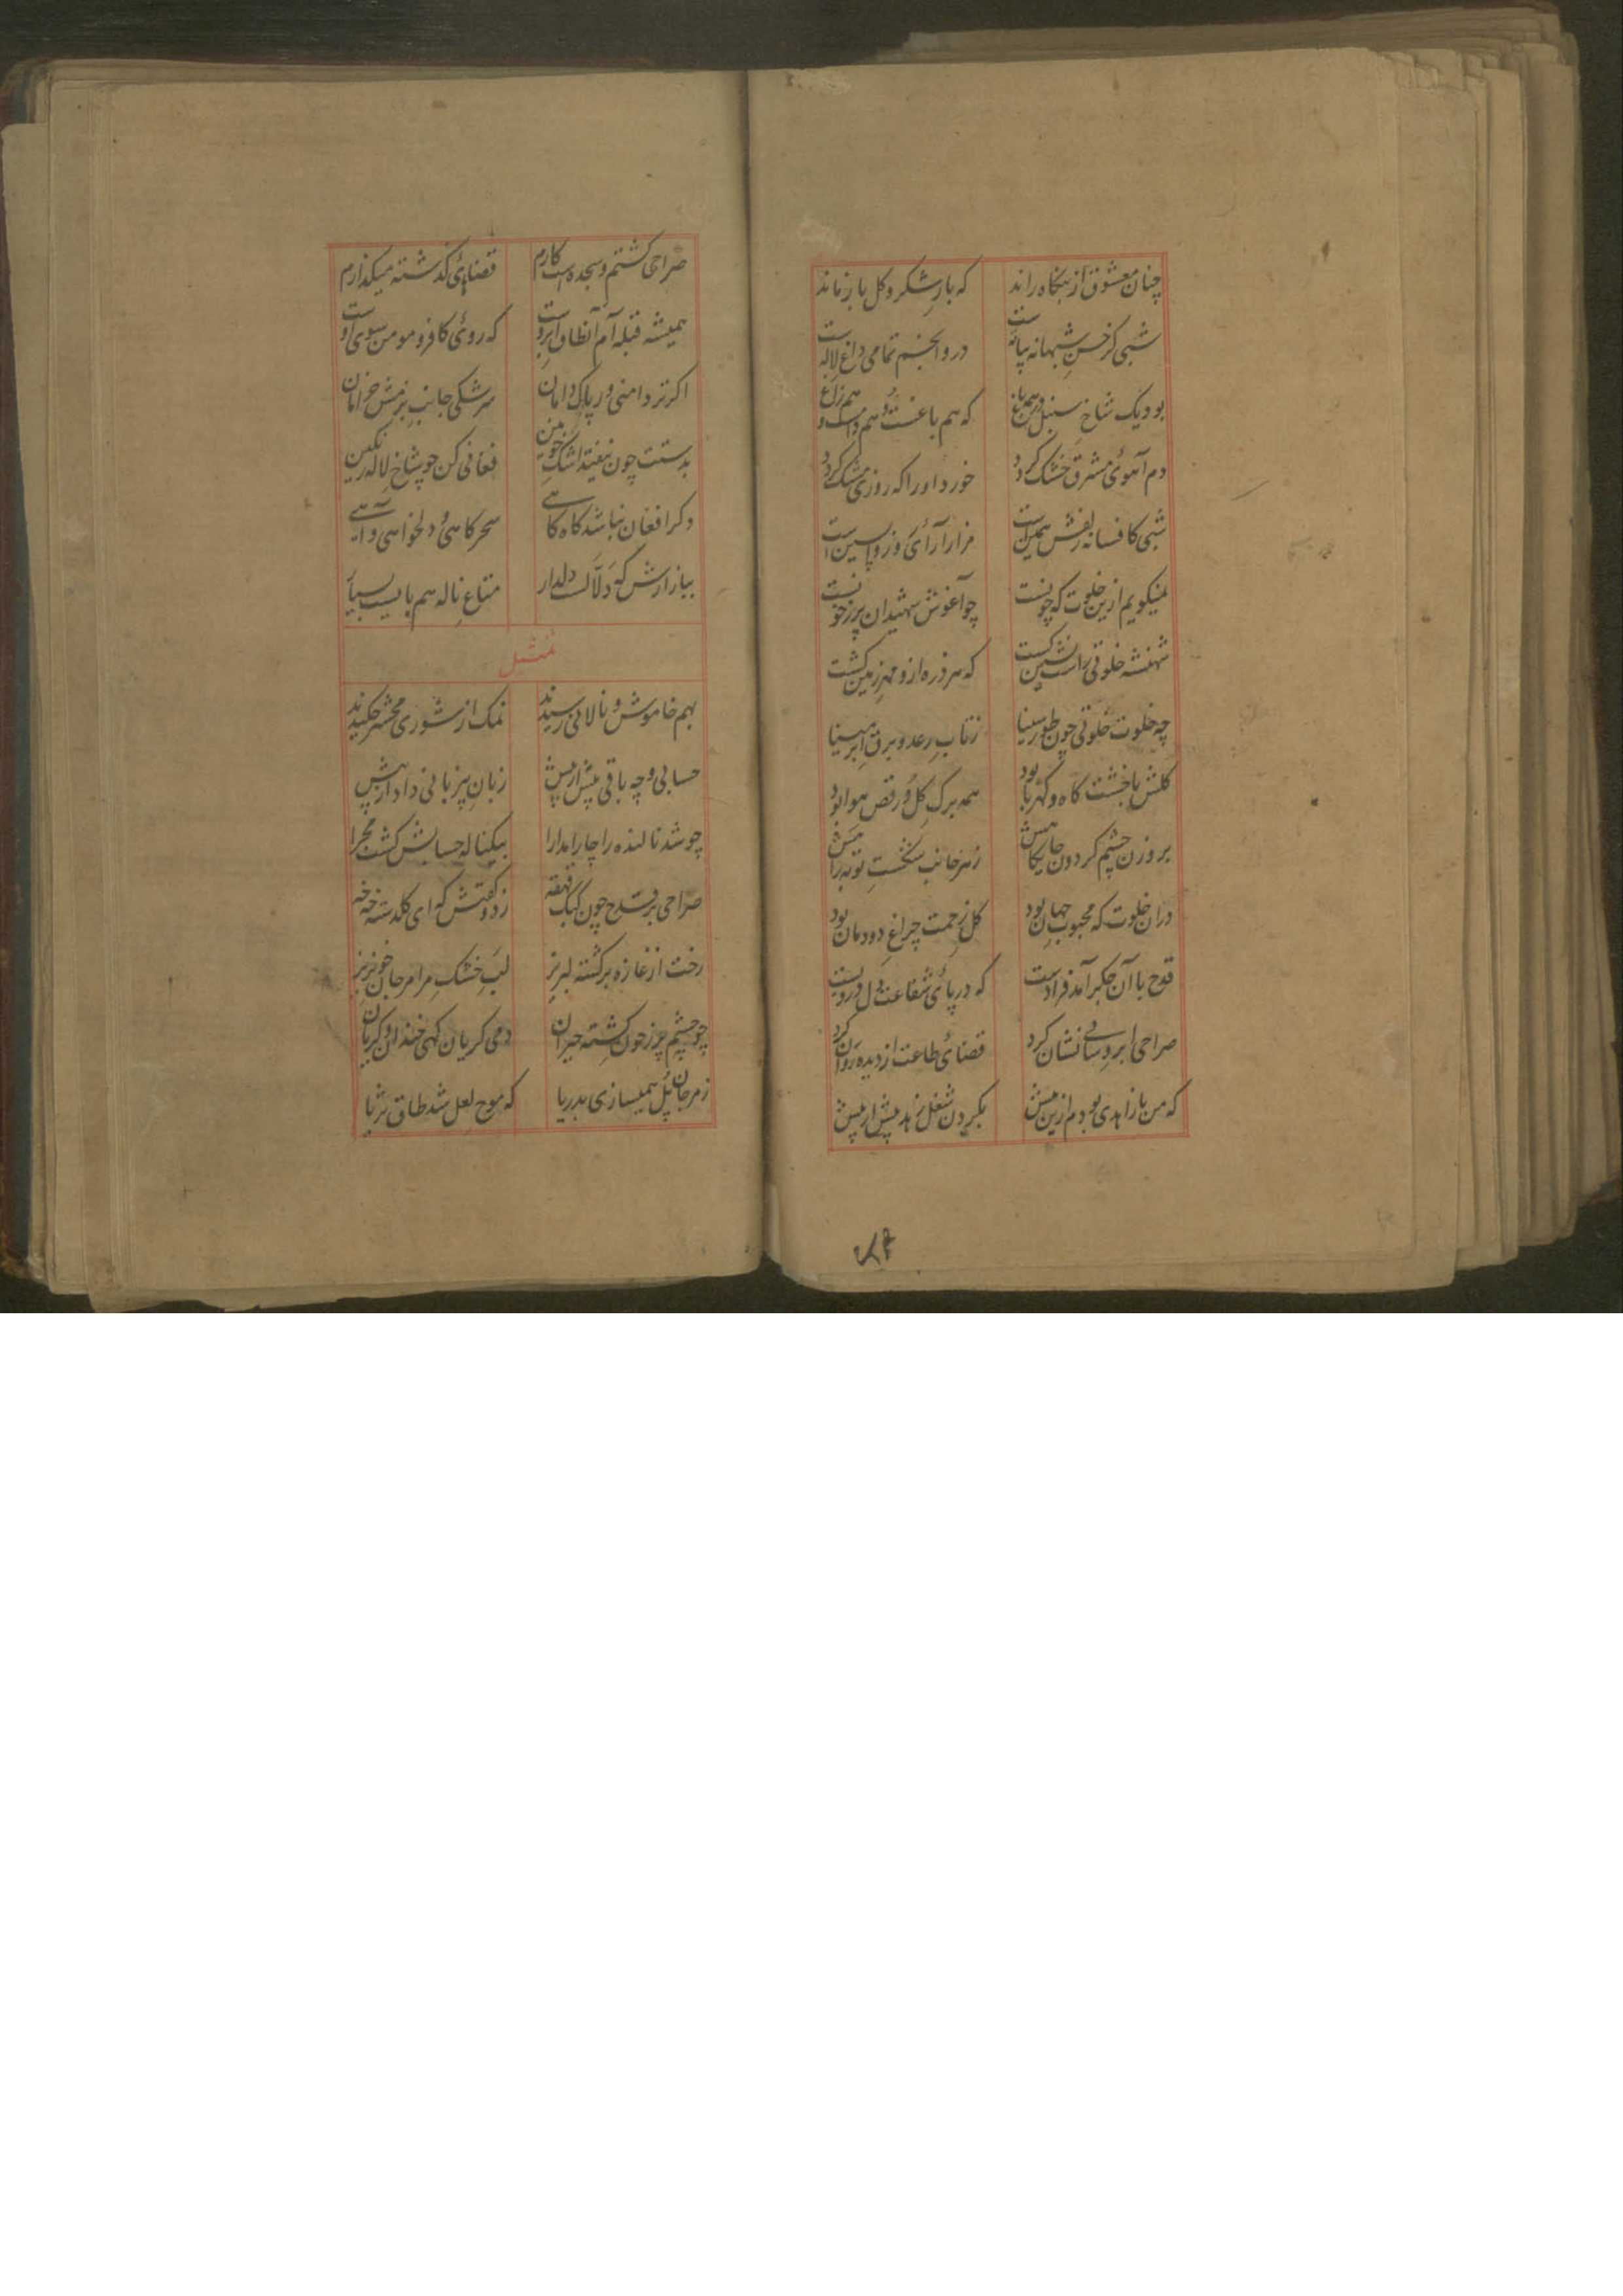 چنان معشوق از بنکاه راند که بار شکر و کل باز ماند
شبی کز حسن شبهانه پیاله است در و انجم تمامی داغ لاله است
بود یک شاخ سنبل در همه باغ که هم باغست و هم دامست و هم زاغ
دم آهوی مشرق خشک کردد خورد او را که روزی مشک کردد
شبی کافسانه زلفش همین است مزار آرای روز واپسین است
نمیکویم ازین خلوت که چونست چو آغوش شهیدان پر ز خونست
شهنشه خلوتی را نشین کشت که هر ذره ازو مهر زمین کشت
چه خلوت خلوتی چون طور سینا ز تاب رعد و برق ابر مینا
کلش با خشت کاه و کهربا بود همه برک کل و رقص هوا بود
بروزن چشم کردون جایکاهش ز هر جانب شکست توبه راهش
دران خلوت که محبوب جهان بود کل زحمت چراغ دودمان بود
قدح با آن جکر آمد فرا دست که در پای شفاعت دل درو بست
صراحی ابر وسانی نشان کرد قضای طاعت از دیده روان کرد
که من باز اهدی بودم ازین پیش بکردن شغل زهد پیش از پیش
صراحی کشتم و سجده است کارم قضایی کذشته میکذارم
همیشه قبله آم آن طاق ابروست که روی کافر و مومن سوی اوست
اکر تر دامنی ور پاک دامان سرشکی جانب بزمش خرامان
بدستت چون نیفتد اشک خونین فغانی کن چو شاخ لاله رنکین
دکر افغان نباشد کاه کاهی سحرکاهی و دلخواهی و آهی
ببازارش که دلالست دلدار متاع ناله هم بایست بسیار
تمثیل
بهم خاموش و نالانی رسیدند نمک از شوری محشر چکیدند
حسابی و چه باقی پیش از پیش زبان بیزبانی داد از پیش
چو شد نالنده را چار مدارا بیکناله حسابش کشت مجرا
صراحی بر قدح چون کبک قهقه زد و کفتش که ای کلدسته خه خه
رخت از غازه برکشته لبریز لب خشک مرا مرجان خونریز
چو چشم پر ز خون کشته حیران دمی کریان کهی خندان و کریان
ز مرجان پل همیسازی بدریا که موج لعل شد طاق ثریا